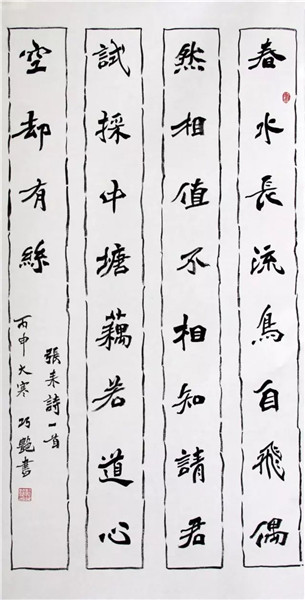 春水長流鳥自飛偶
然相值不相知請君
試採中塘藕若道心
空却有絲
張耒詩一首
丙申大寒 巧艷書